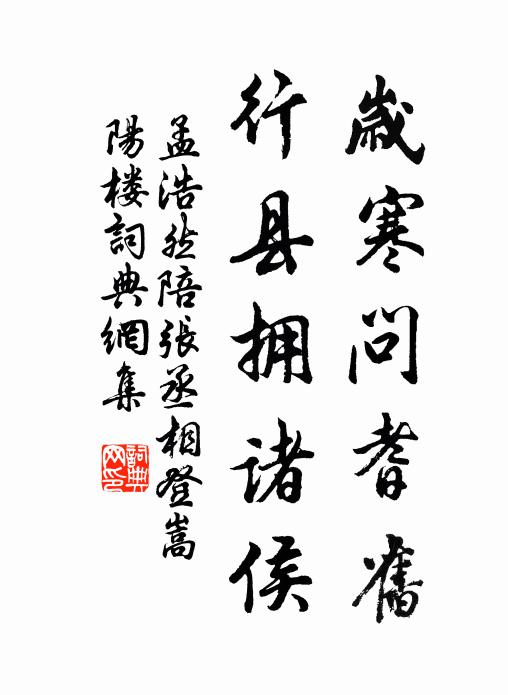 歲寒問耆舊
行县拥诸侯
孟浩然陪張丞相登嵩
陽楼詞典網集
詞典网印